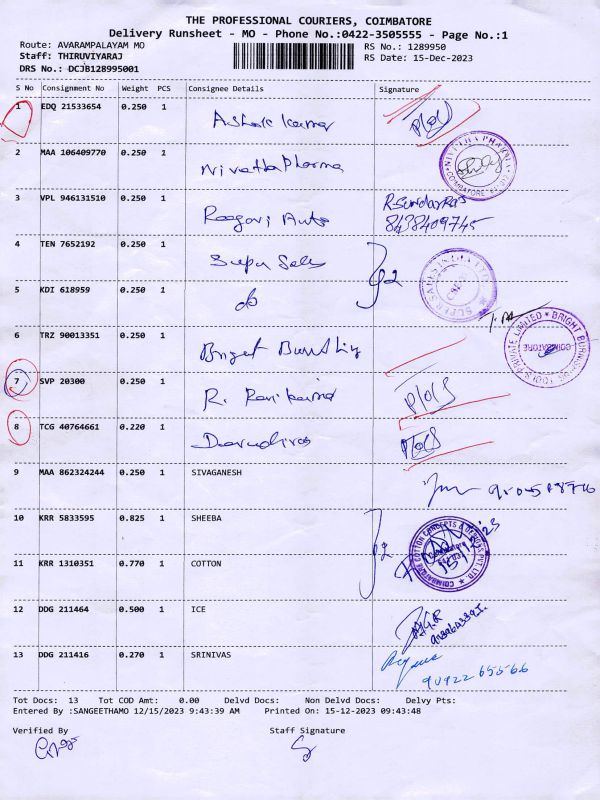 THE PROFESSIONAL COURIERS, COIMBATORE
Delivery Runsheet - MO - Phone No.:0422-3505555 - Page No.:1
Route: AVARAMPALAYAM MO
RS No.: 1289950
Staff: THIRUVIYARAJ
RS Date: 15-Dec-2023
DRS No.: DCJB128995001
S No Consignment No Weight PCS Consignee Details Signature
1 EDQ 21533654 0.250 1 Ashok Kumar
2 MAA 106409770 0.250 1 Nivetha Pharma
NIVETHA PHARMA COIMBATORE
3 VPL 946131510 0.250 1 Auto R.Sundarraj
8438409745
4 TEN 7652192 0.250 1 Super Sales
5 KDI 618959 0.250 1 do
6 TRZ 90013351 0.250 1
PRIVATE LIMITED * BRIGHT BURNISHING TOOLS
COIMBATORE
7 SVP 20300 0.250 1 R. Ravikumar
8 TCG 40764661 0.220 1
9 MAA 862324244 0.250 1 SIVAGANESH
10 KRR 5833595 0.825 1 SHEEBA
COIMBATORE COTTON CONCEPTS & DESIGNS PVT. LTD.
11 KRR 1310351 0.770 1 COTTON
12 DDG 211464 0.500 1 ICE
13 DDG 211416 0.270 1 SRINIVAS
90922 65566
Tot Docs: 13 Tot COD Amt: 0.00 Delvd Docs: Non Delvd Docs: Delvy Pts:
Entered By :SANGEETHAMO 12/15/2023 9:43:39 AM Printed On: 15-12-2023 09:43:48
Verified By Staff Signature